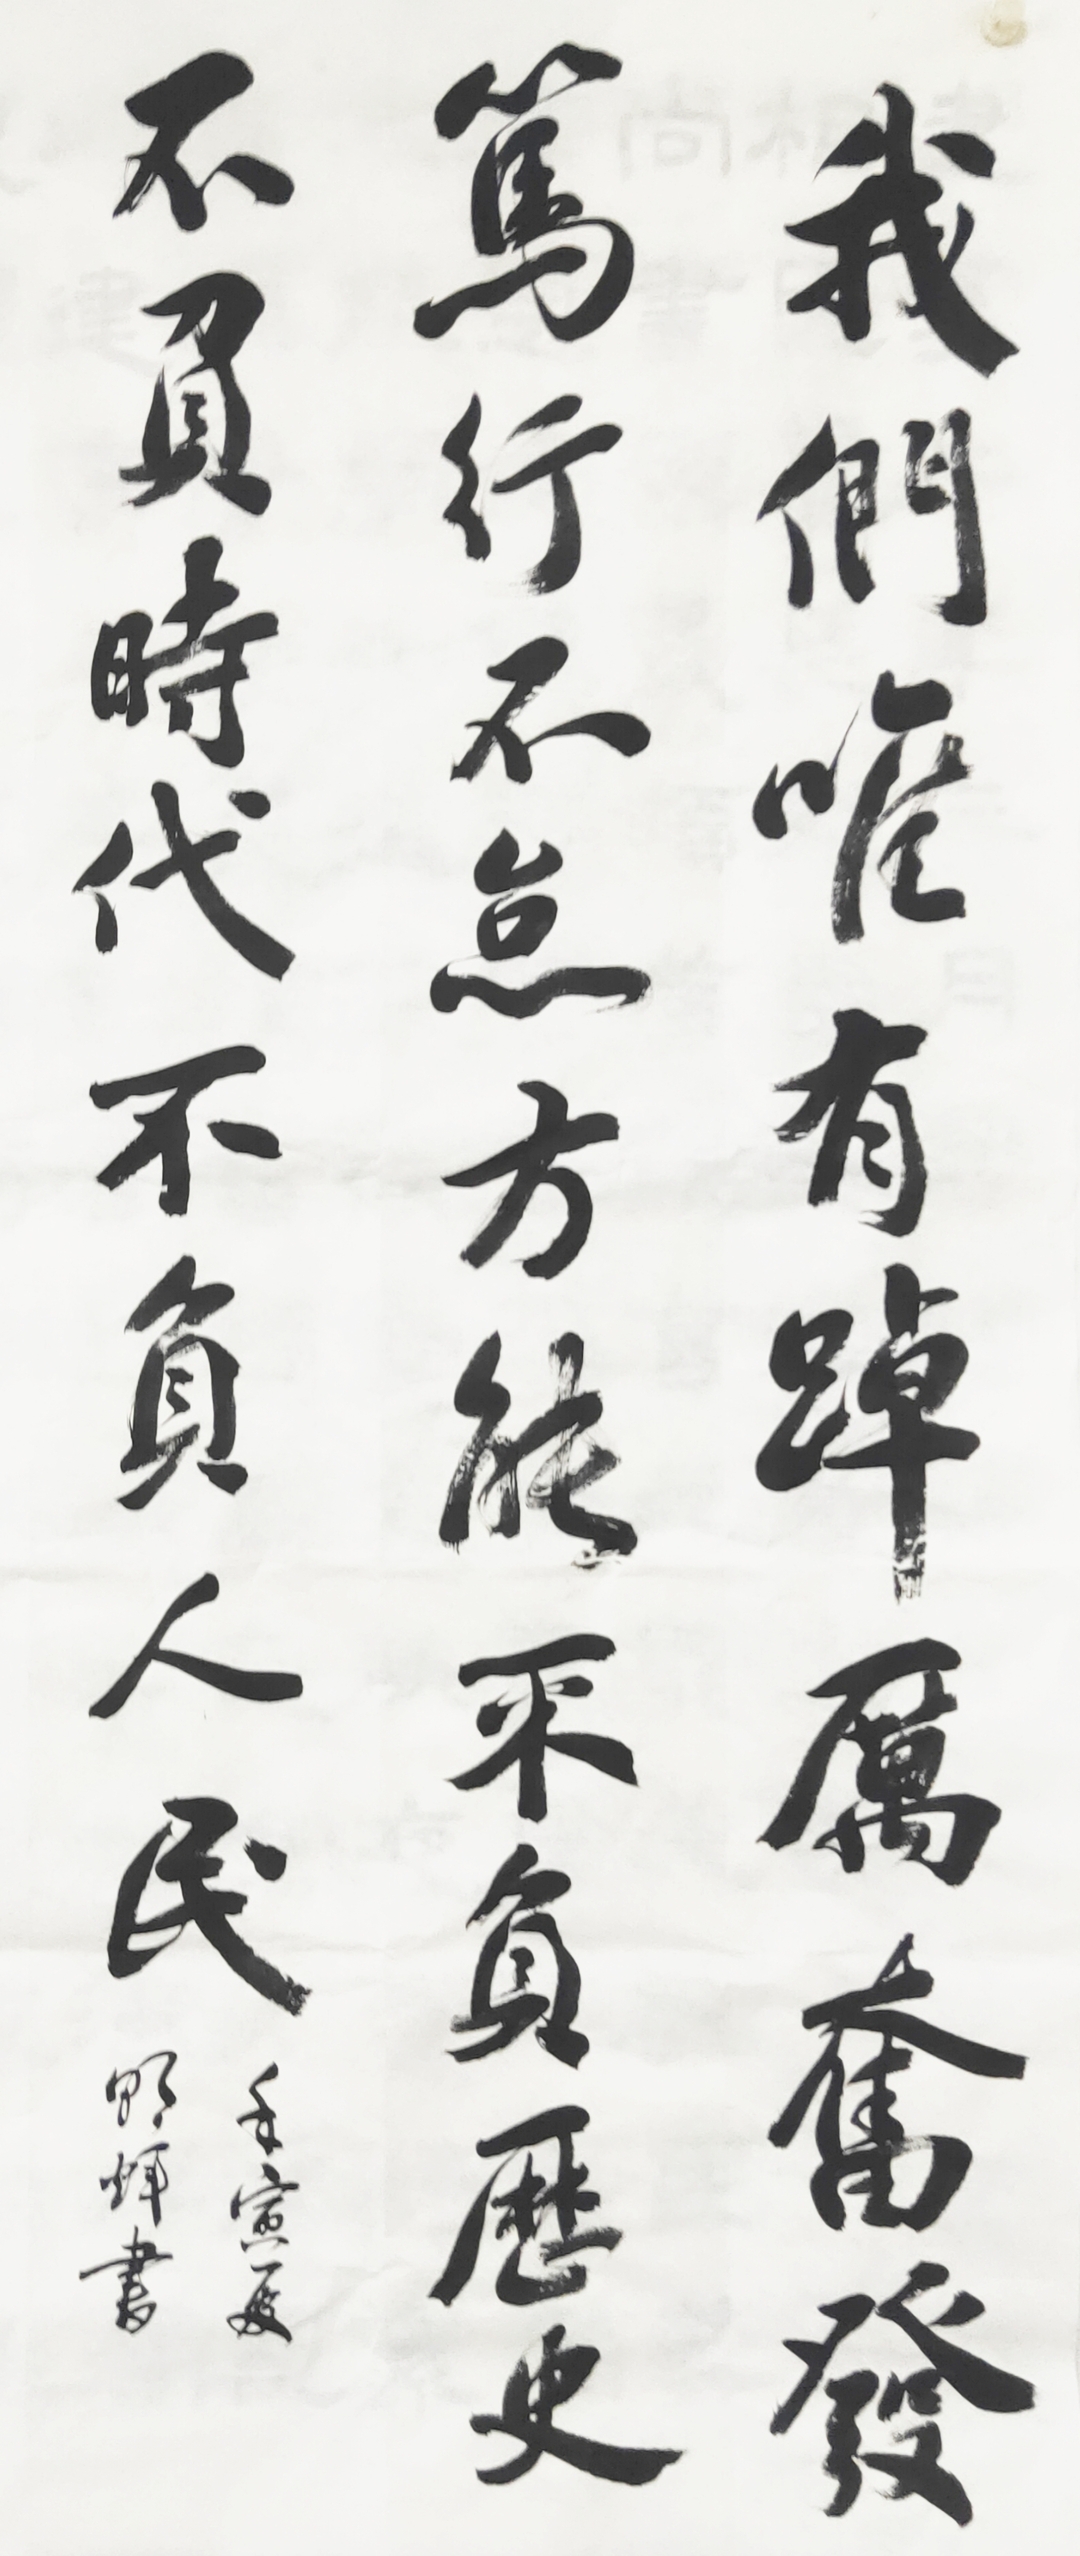 我們唯有踔厲奮發
篤行不怠方能不負歷史
不負時代不負人民
壬寅夏
明輝書